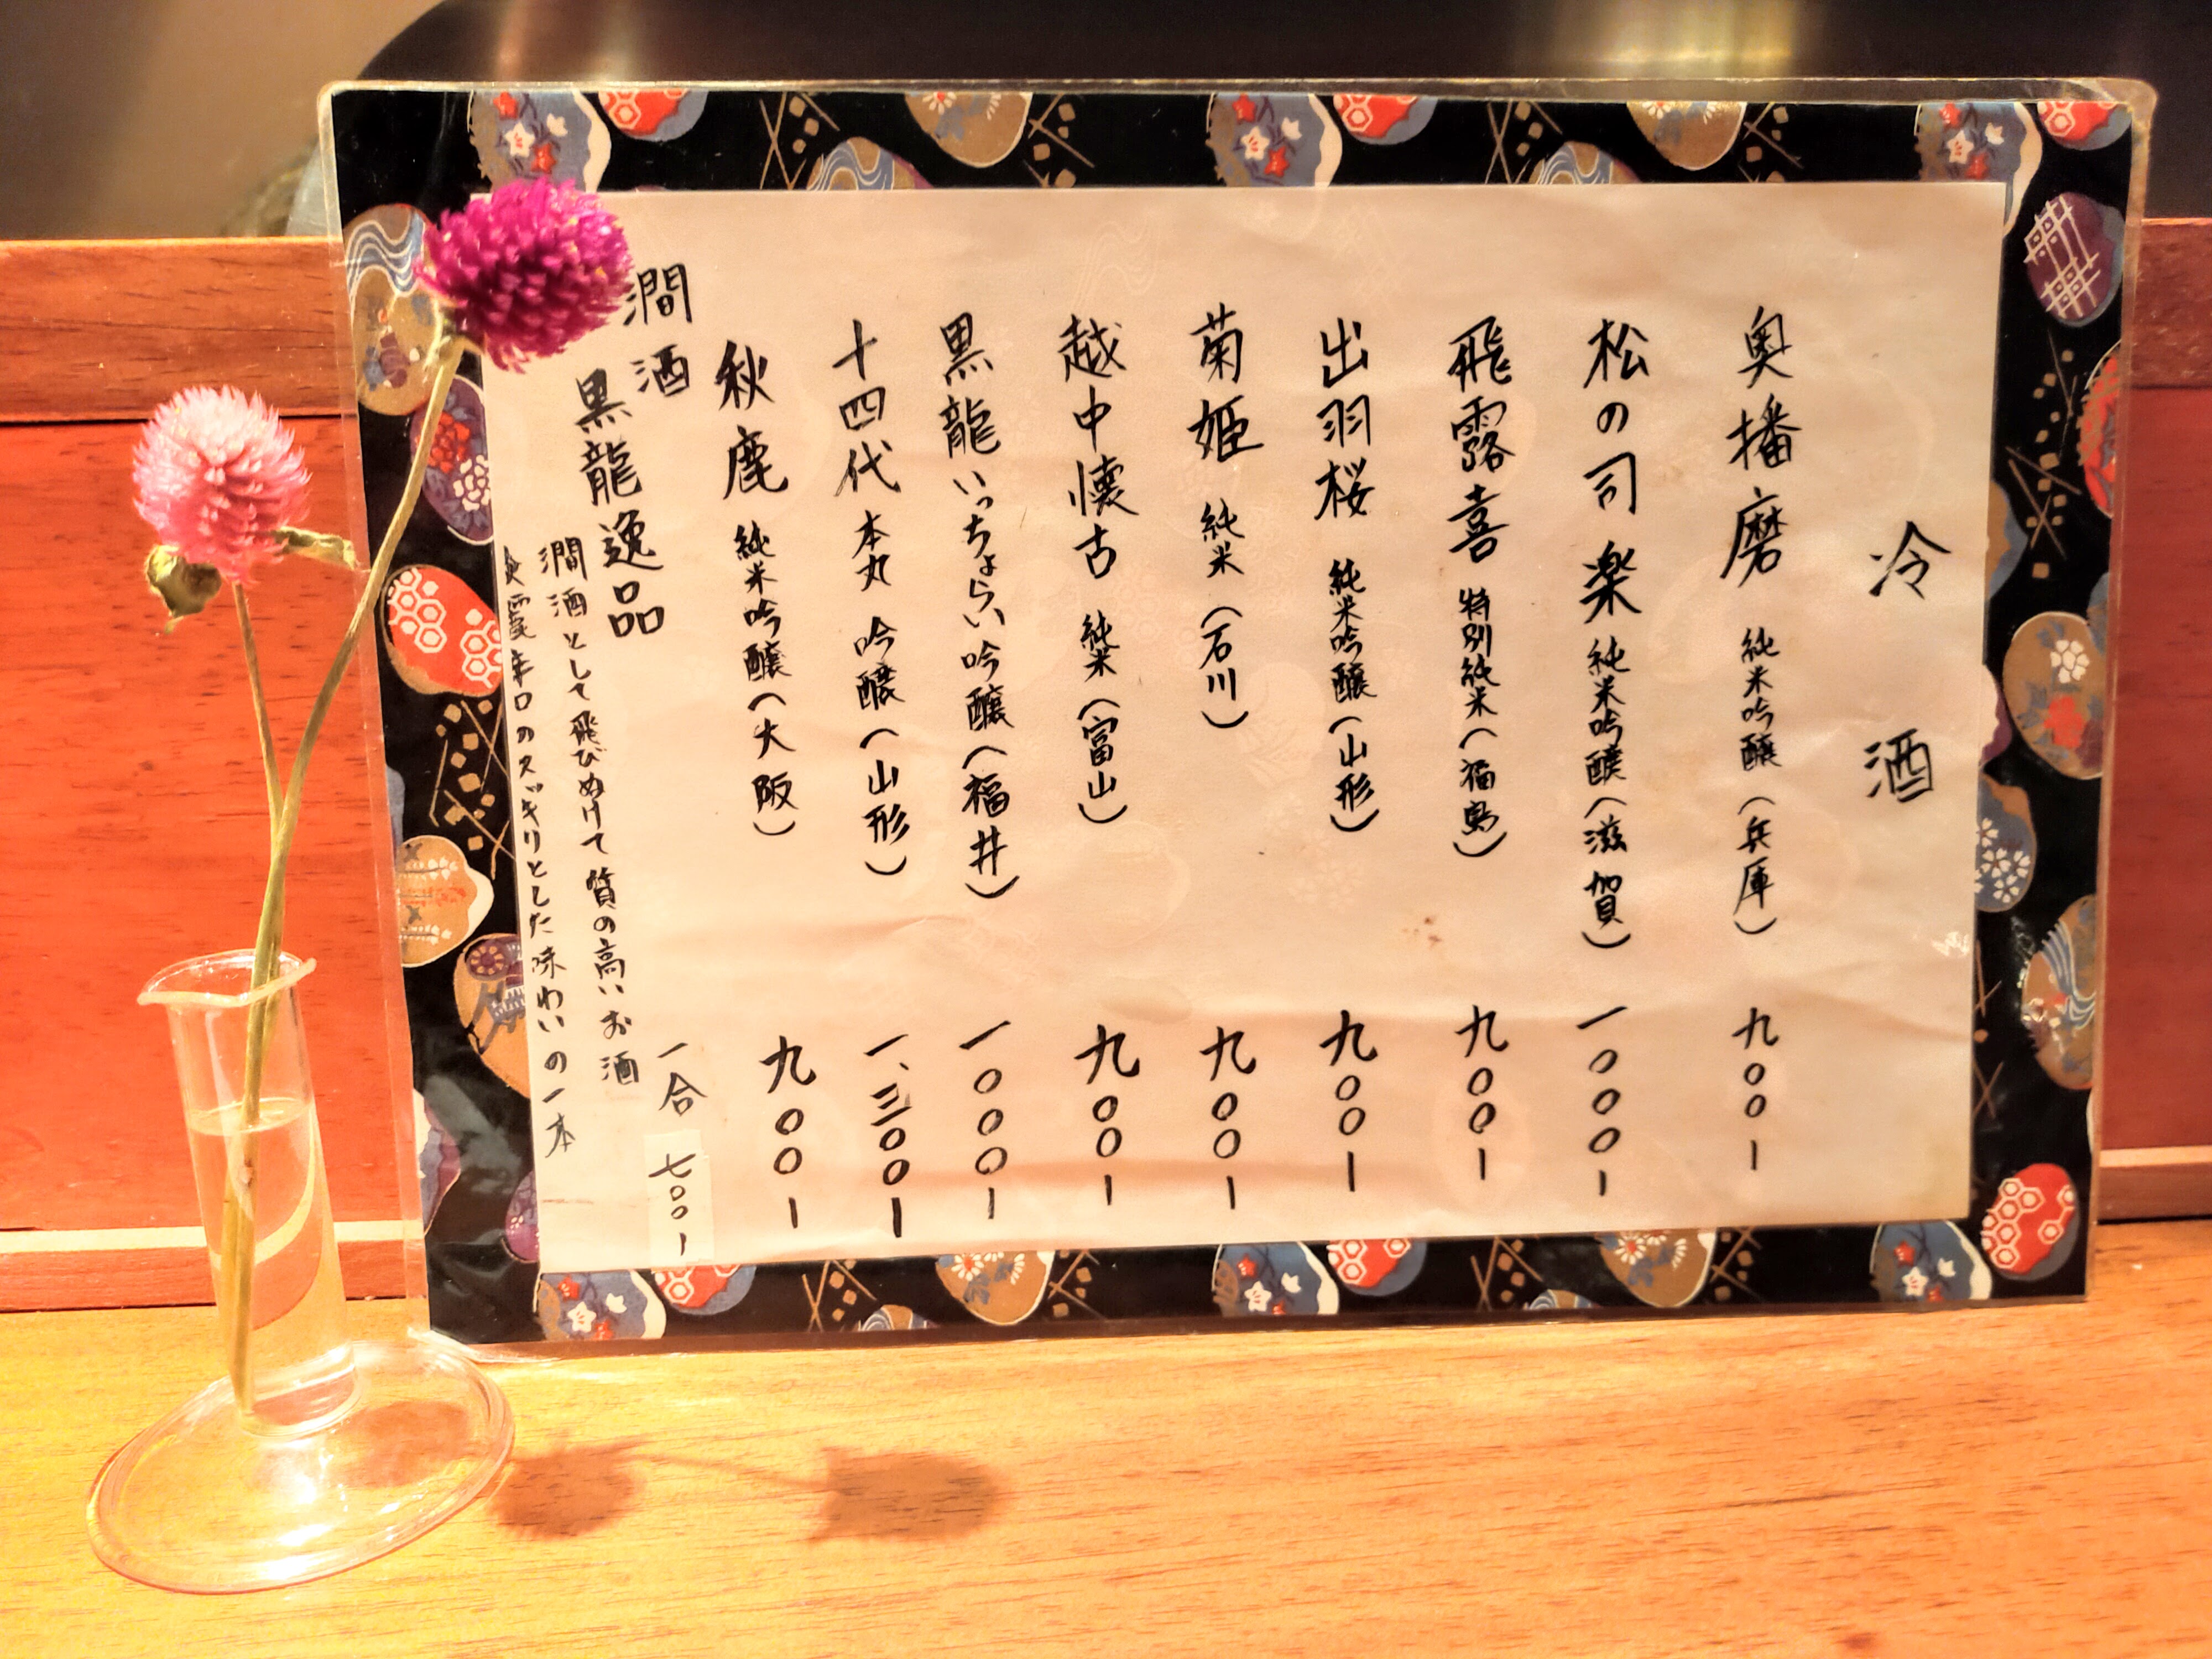 冷酒
奥播磨 純米吟醸(兵庫) 九〇〇ー
松の司 楽 純米吟醸(滋賀) 一〇〇〇ー
飛露喜 特別純米(福島) 九〇〇ー
出羽桜 純米吟醸(山形) 九〇〇ー
菊姫 純米(石川) 九〇〇ー
越中懐古 純米(富山) 九〇〇ー
黒龍いっちょらい 吟醸(福井) 一〇〇〇ー
十四代 本丸 吟醸(山形) 一、三〇〇ー
秋鹿 純米吟醸(大阪) 九〇〇ー
燗酒
黒龍逸品 一合 七〇〇ー
燗酒として飛びぬけて質の高いお酒
辛口のスッキリとした味わいの一本